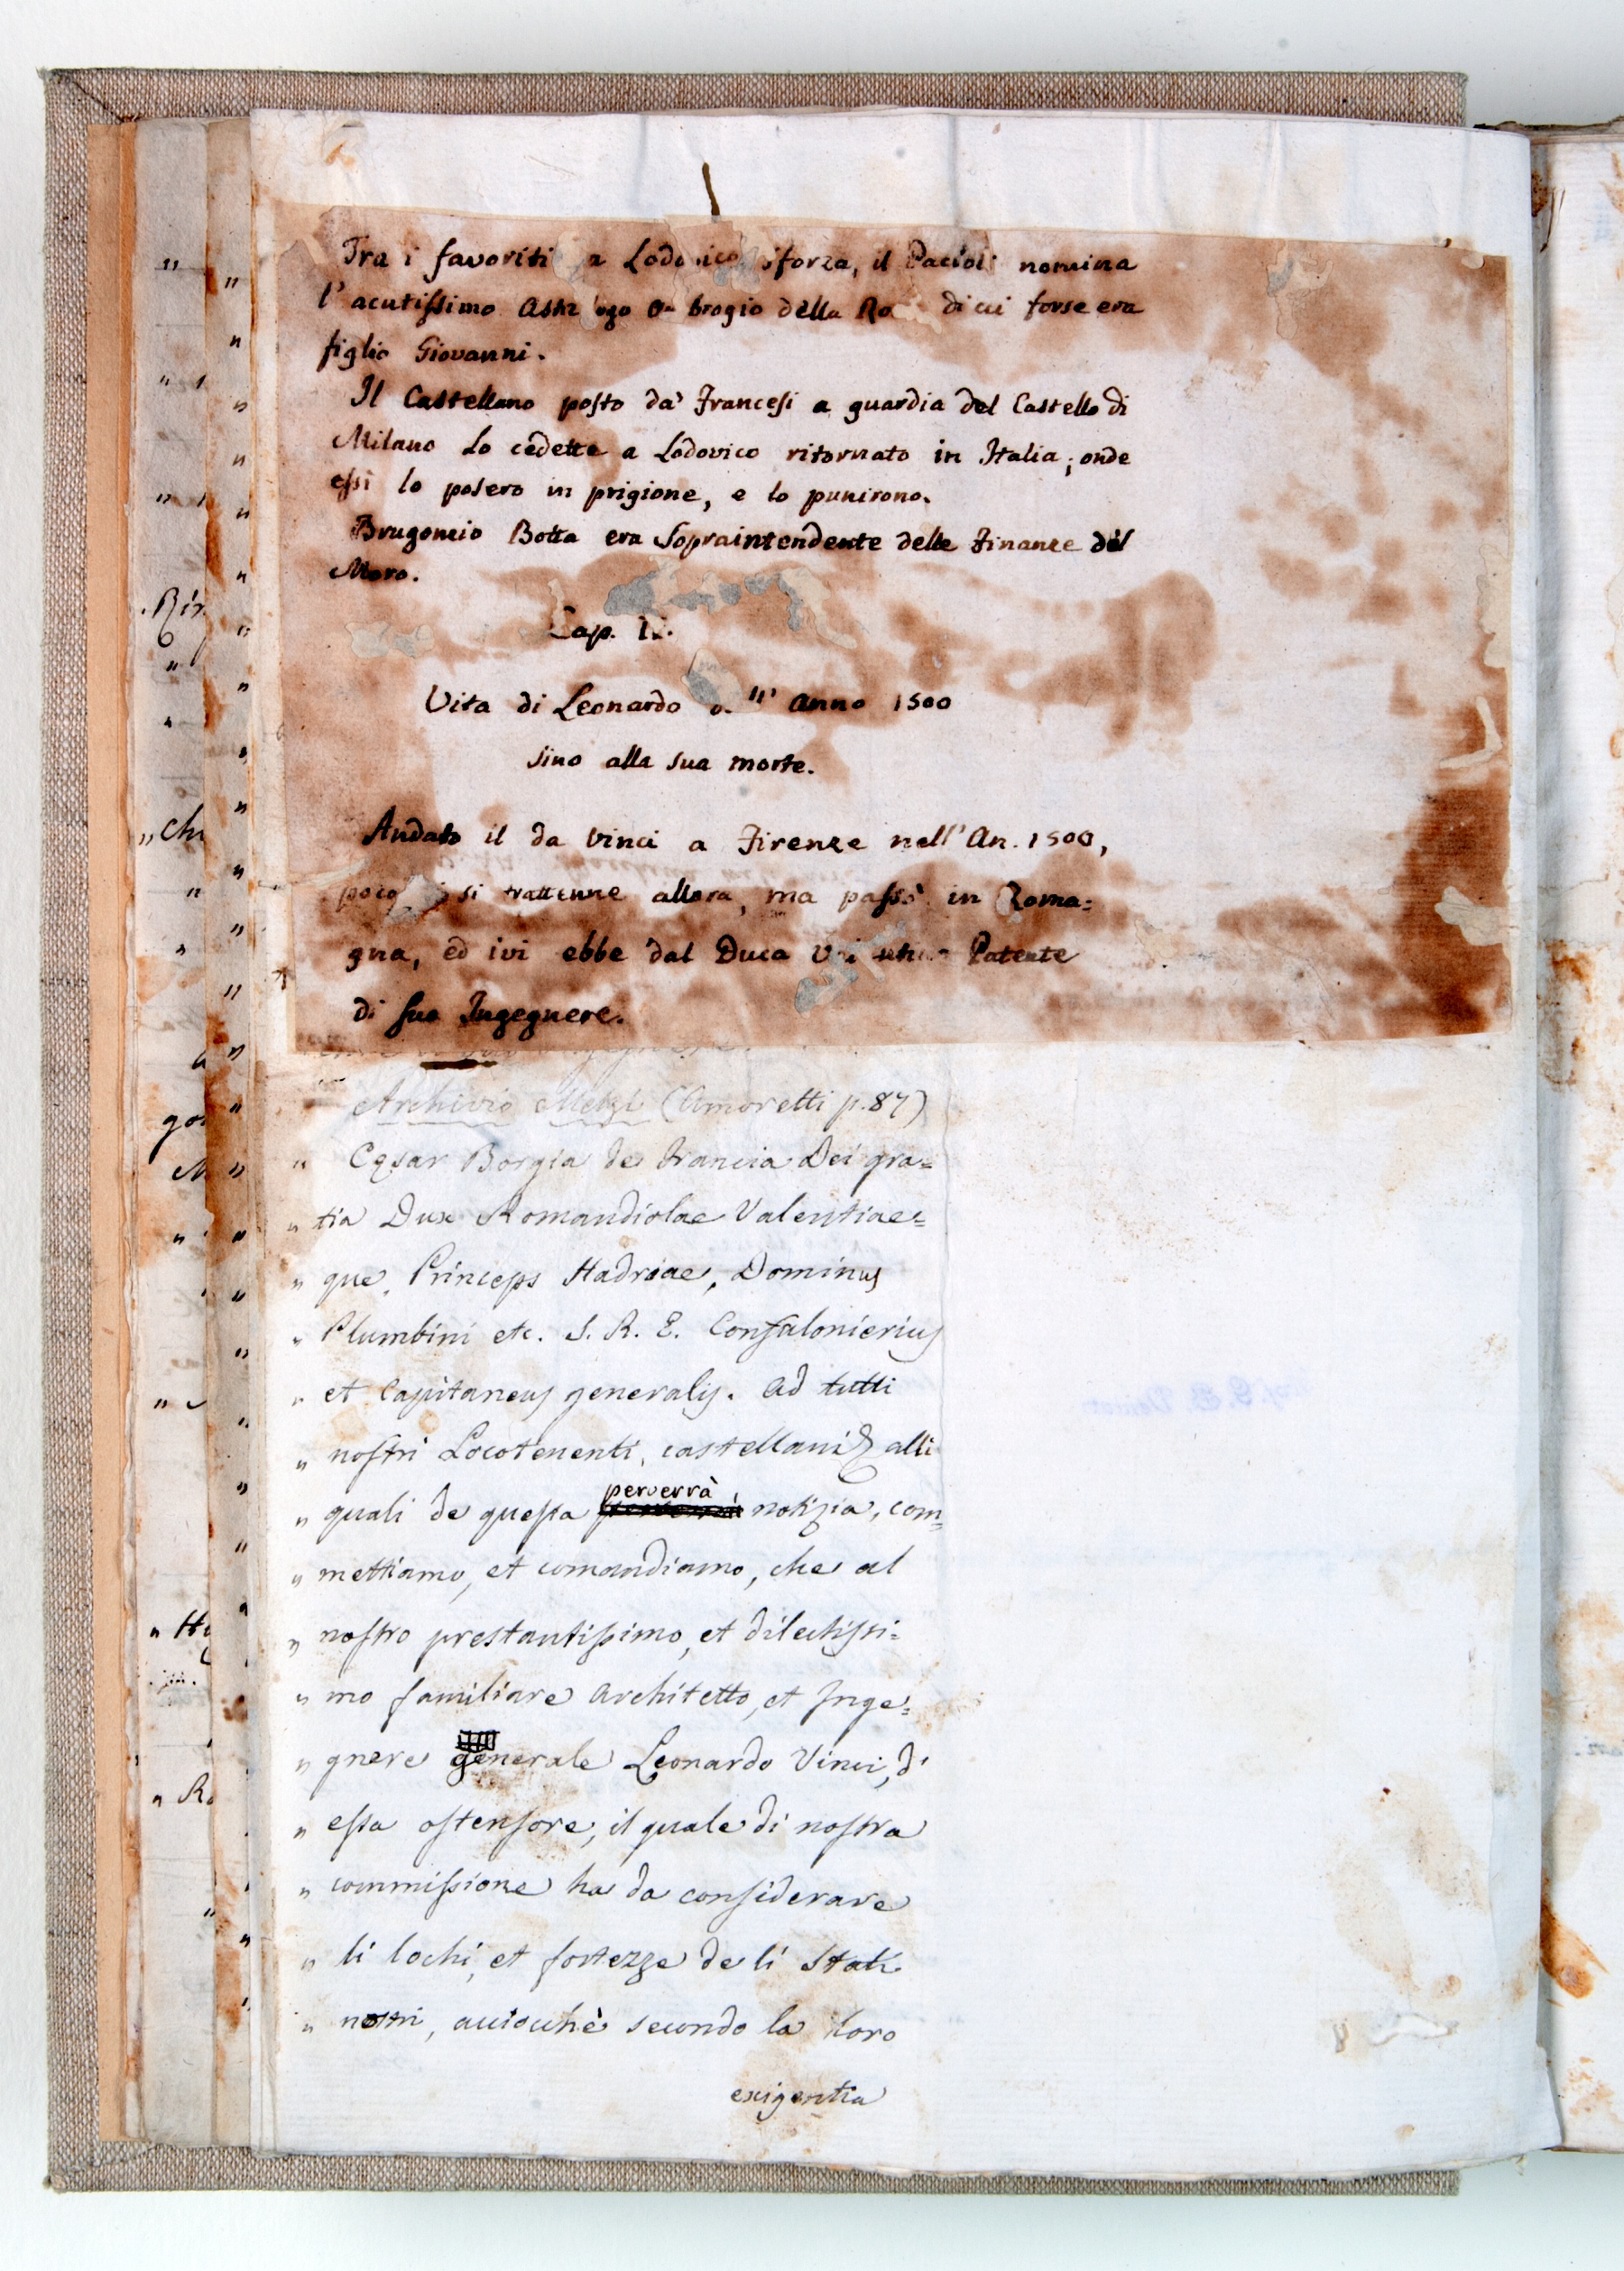 Tra i favoriti a Lodovico Sforza, il Pacioli nomina
l'acutissimo della di cui forse era
figlio Giovanni.
Il Castellano posto da' Francesi a guardia del Castello di
Milano lo cedette a Lodovico ritornato in Italia; onde
essi lo posero in prigione, e lo punirono.
Brugoncio Botta era Sopraintendente delle Finanze del
Moro.
Cap.
Vita di Leonardo anno 1500
sino alla sua morte.
Andato il da Vinci a Firenze nell'An. 1500,
si trattenne allora, ma passò in Roma=
gna, ed ivi ebbe dal Duca Patente
di suo Ingegnere.
Archivio Melzi (Amoretti p. 87)
" Cęsar Borgia de Francia Dei gra=
" tia Dux Romandiolae Valentiae=
" que, Princeps Hadriae, Dominus
" Plumbini etc. S. R. E. Confalonierius
" et Capitaneus generalis. Ad tutti
" nostri Locotenenti, castellani & alli
" quali de questa perverrà notizia, com=
" mettiamo, et comandiamo, che al
" nostro prestantissimo, et dilectissi=
" mo familiare Architetto, et Inge=
" gnere generale Leonardo Vinci, d'
" essa ostensore, il quale di nostra
" commissione ha da considerare
" li lochi, et fortezze de li Stati
" nostri, acciocchè secondo la loro
exigentia